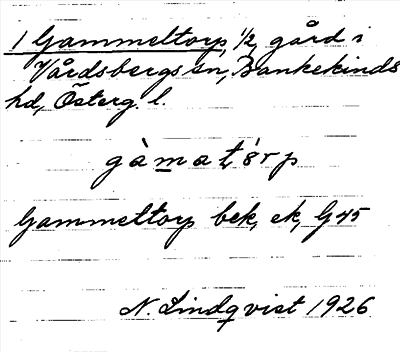 1 Gammeltorp, 1/2 gård i
Vårdsbergs sn, Bankekinds
hd, Österg. l.
gàmatórp
Gammeltorp bek, ek, G45
N. Lindqvist 1926